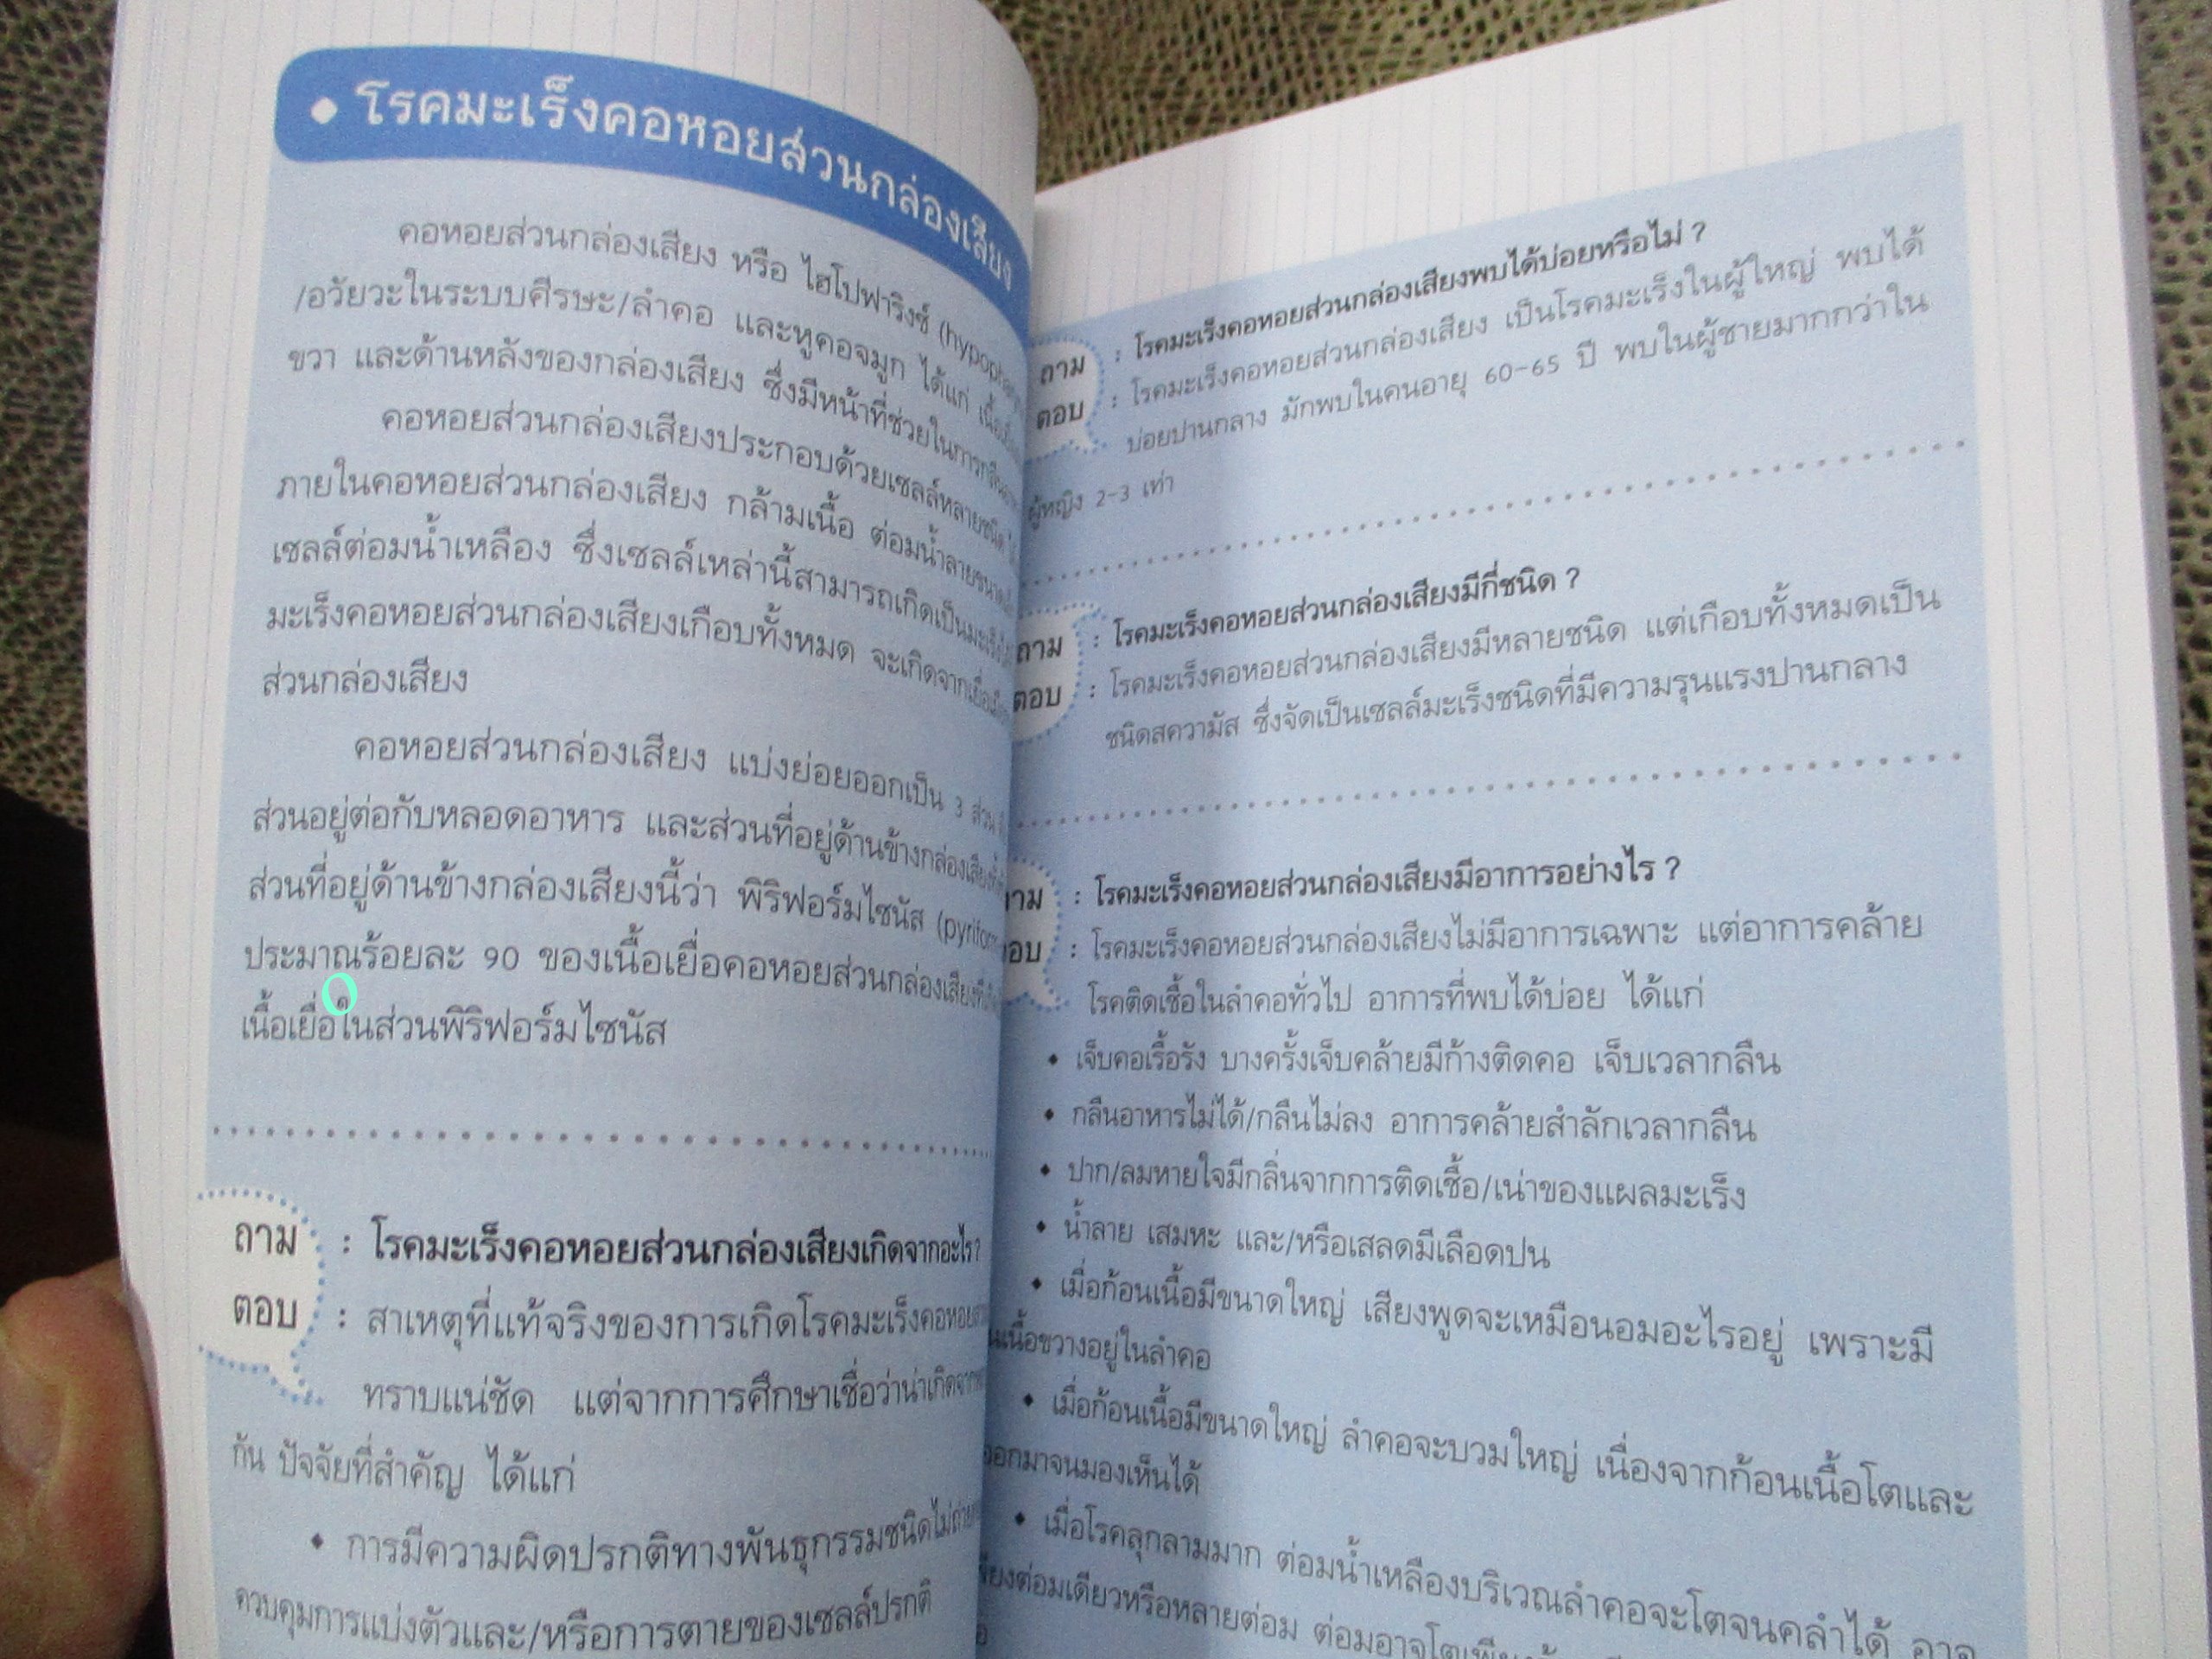 • โรคมะเร็งคอหอยส่วนกล่องเสียง
คอหอยส่วนกล่องเสียง หรือ ไฮโปฟาริงซ์
/อวัยวะในระบบศีรษะ/ลำคอ และหูคอจมูก ได้แก่
ขวา และด้านหลังของกล่องเสียง ซึ่งมีหน้าที่ช่วยในการกลืน
คอหอยส่วนกล่องเสียงประกอบด้วยเซลล์หลายชนิด
ภายในคอหอยส่วนกล่องเสียง กล้ามเนื้อ ต่อมน้ำลาย
เซลล์ต่อมน้ำเหลือง ซึ่งเซลล์เหล่านี้สามารถเกิดเป็น
มะเร็งคอหอยส่วนกล่องเสียงเกือบทั้งหมด จะเกิดจาก
ส่วนกล่องเสียง
คอหอยส่วนกล่องเสียง แบ่งย่อยออกเป็น 3 ส่วน
ส่วนอยู่ต่อกับหลอดอาหาร และส่วนที่อยู่ด้านข้างกล่องเสียง
ส่วนที่อยู่ด้านข้างกล่องเสียงนี้ว่า พิริฟอร์มไซนัส
ประมาณร้อยละ 90 ของเนื้อเยื่อคอหอยส่วนกล่องเสียง
เนื้อเยื่อในส่วนพิริฟอร์มไซนัส
ถาม : โรคมะเร็งคอหอยส่วนกล่องเสียงเกิดจากอะไร?
ตอบ : สาเหตุที่แท้จริงของการเกิดโรคมะเร็งคอหอย
ทราบแน่ชัด แต่จากการศึกษาเชื่อว่าน่าเกิดจาก
กัน ปัจจัยที่สำคัญ ได้แก่
• การมีความผิดปรกติทางพันธุกรรมชนิด
ควบคุมการแบ่งตัวและ/หรือการตายของเซลล์ปรกติ
ถาม : โรคมะเร็งคอหอยส่วนกล่องเสียงพบได้บ่อยหรือไม่ ?
ตอบ : โรคมะเร็งคอหอยส่วนกล่องเสียง เป็นโรคมะเร็งในผู้ใหญ่ พบได้
บ่อยปานกลาง มักพบในคนอายุ 60-65 ปี พบในผู้ชายมากกว่าใน
ผู้หญิง 2-3 เท่า
ถาม : โรคมะเร็งคอหอยส่วนกล่องเสียงมีกี่ชนิด ?
ตอบ : โรคมะเร็งคอหอยส่วนกล่องเสียงมีหลายชนิด แต่เกือบทั้งหมดเป็น
ชนิดสความัส ซึ่งจัดเป็นเซลล์มะเร็งชนิดที่มีความรุนแรงปานกลาง
ถาม : โรคมะเร็งคอหอยส่วนกล่องเสียงมีอาการอย่างไร ?
ตอบ : โรคมะเร็งคอหอยส่วนกล่องเสียงไม่มีอาการเฉพาะ แต่อาการคล้าย
โรคติดเชื้อในลำคอทั่วไป อาการที่พบได้บ่อย ได้แก่
• เจ็บคอเรื้อรัง บางครั้งเจ็บคล้ายมีก้างติดคอ เจ็บเวลากลืน
• กลืนอาหารไม่ได้/กลืนไม่ลง อาการคล้ายสำลักเวลากลืน
• ปาก/ลมหายใจมีกลิ่นจากการติดเชื้อ/เน่าของแผลมะเร็ง
• น้ำลาย เสมหะ และ/หรือเสลดมีเลือดปน
• เมื่อก้อนเนื้อมีขนาดใหญ่ เสียงพูดจะเหมือนอมอะไรอยู่ เพราะมี
เนื้อขวางอยู่ในลำคอ
• เมื่อก้อนเนื้อมีขนาดใหญ่ ลำคอจะบวมใหญ่ เนื่องจากก้อนเนื้อโตและ
ออกมาจนมองเห็นได้
• เมื่อโรคลุกลามมาก ต่อมน้ำเหลืองบริเวณลำคอจะโตจนคลำได้ อาจ
ต่อมเดียวหรือหลายต่อม